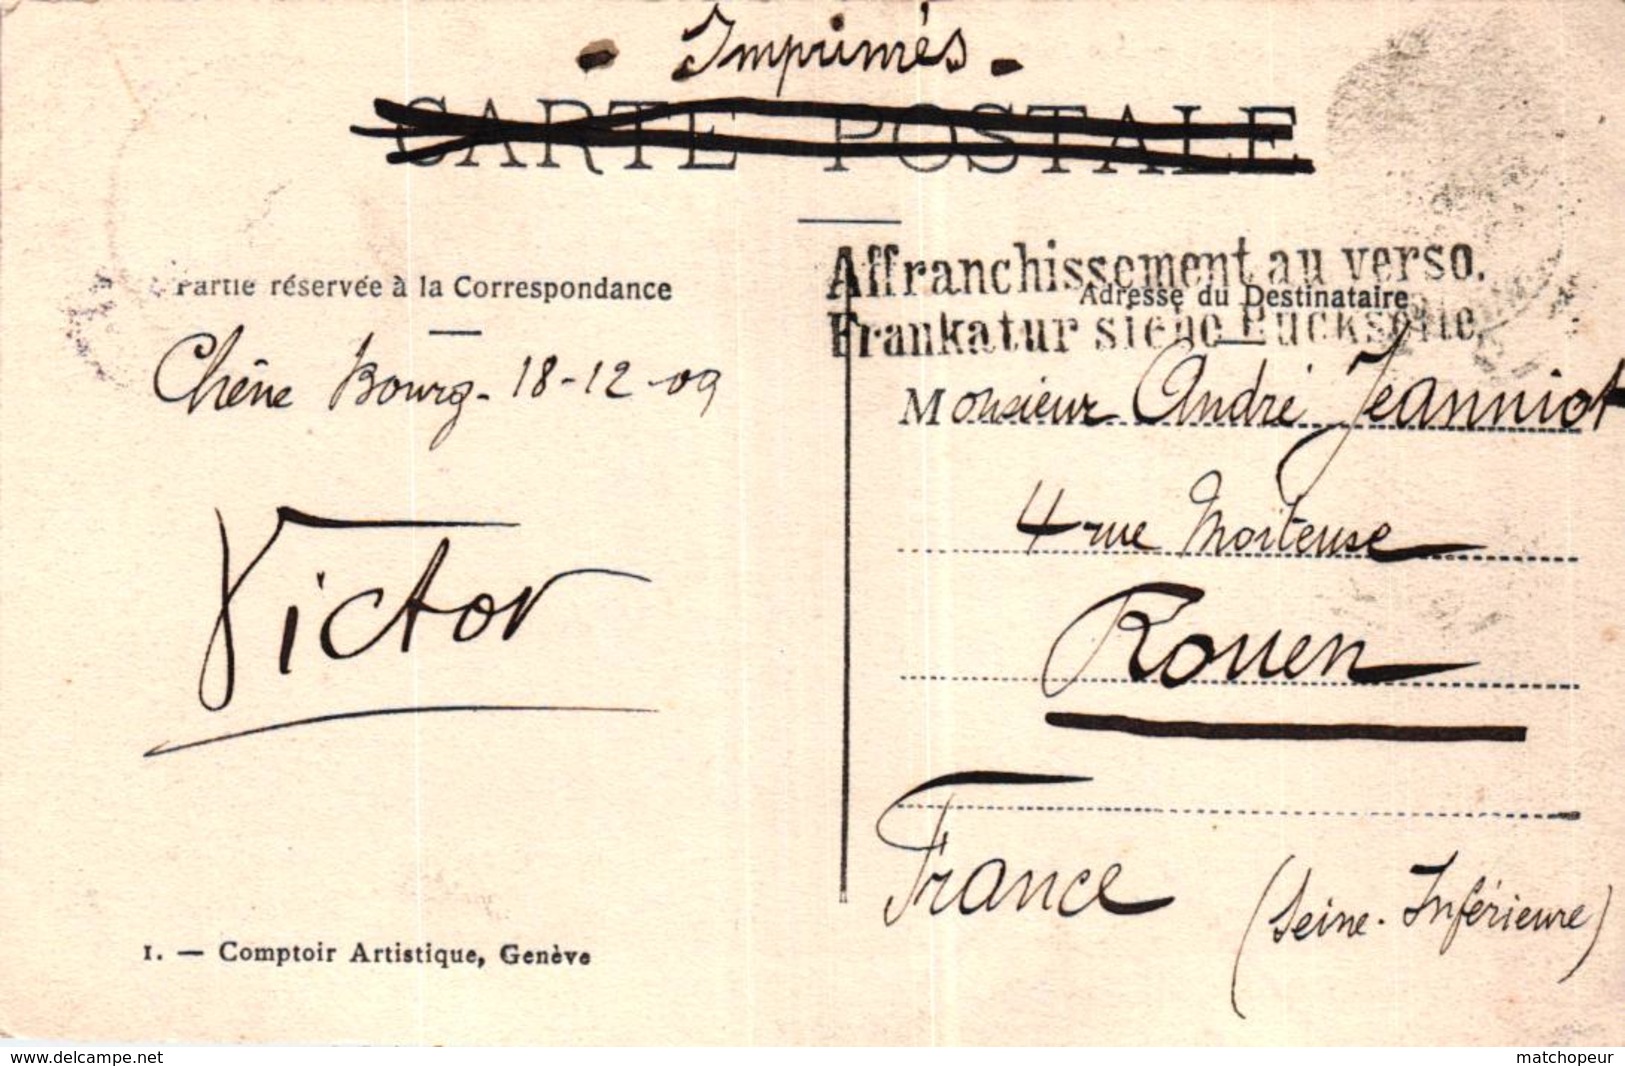 - Imprimés -
CARTE POSTALE
Affranchissement au verso.
Frankatur siehe Rückseite.
Partie réservée à la Correspondance
Chêne Bourg - 18-12-09
Victor
1. — Comptoir Artistique, Genève
Adresse du Destinataire
Monsieur André Jeanniot
4 rue
Rouen
France
(Seine-Inférieure)
www.delcampe.net
matchopeur